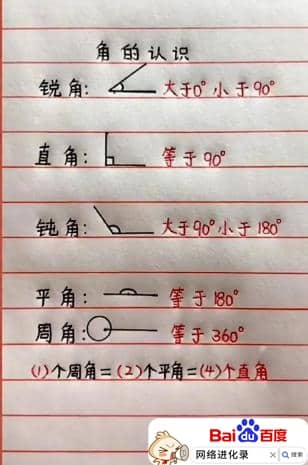 角的认识
锐角: 大于0°小于90°
直角: 等于90°
钝角: 大于90°小于180°
平角: 等于180°
周角: 等于360°
(1)个周角=(2)个平角=(4)个直角
Bai du 百度
网络进化录 × 搜索